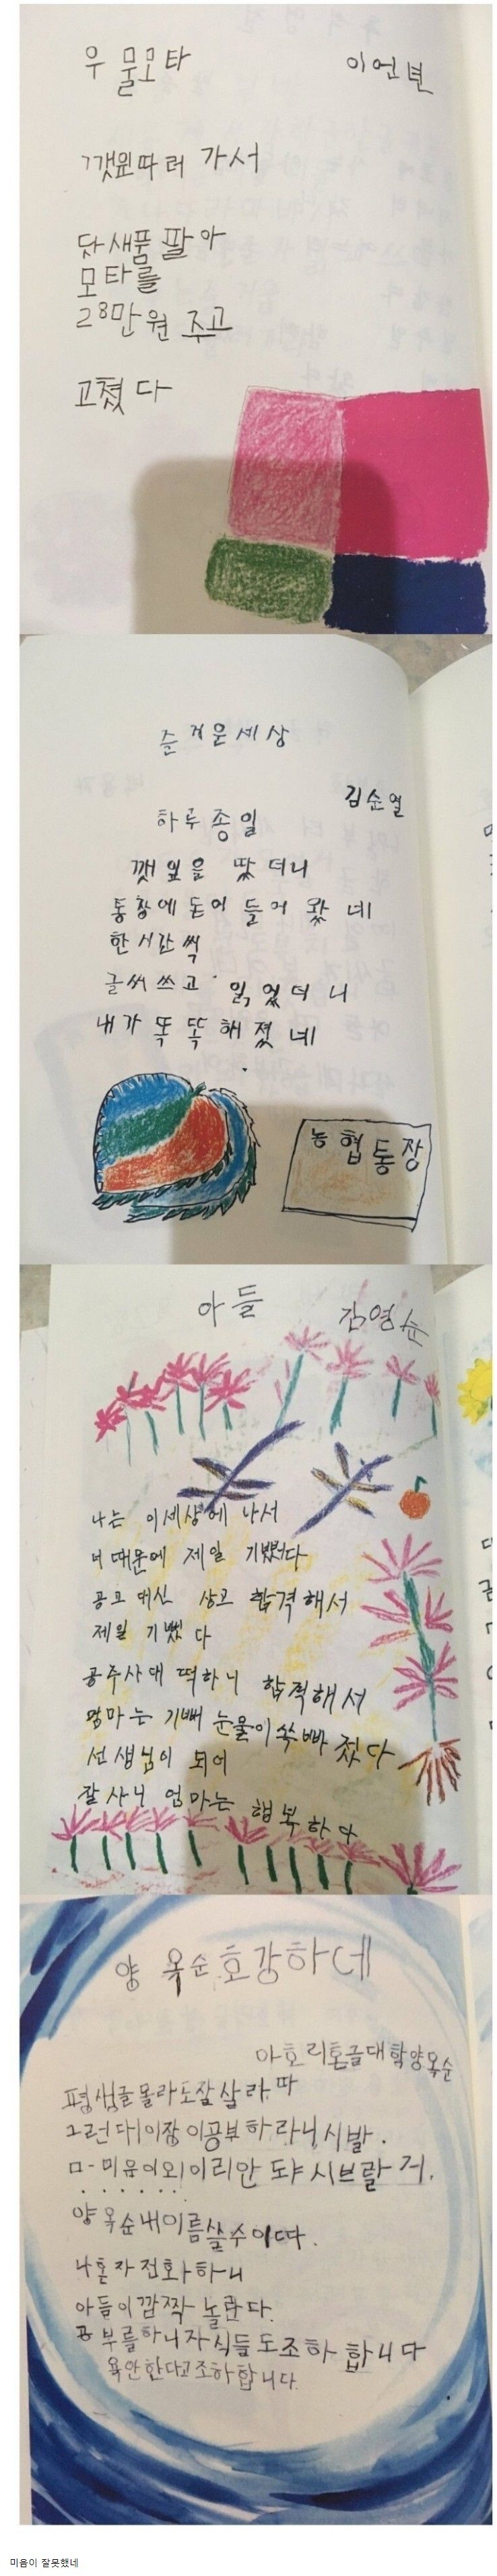 우 물모타
이언년
깻잎따러 가서
닷새품 팔아
모타를
28만원 주고
고쳤다
즐거운세상
김순열
하루종일
깻잎을 땄더니
통장에 돈이 들어 왔네
한시간씩
글씨쓰고 읽었더니
내가 똑똑해졌네
농협통장
아들
김영순
나는 이세상에 나서
너때문에 제일 기뻤다
공고 대신 상고 합격해서
제일 기뻤다
공주사대 떡하니 합격해서
엄마는 기뻐 눈물이 쏙빠졌다
선생님이 되어
잘사니 엄마는 행복하다
양옥순호강하네
아호리혼글대학양옥순
평생글몰라도잘살라따
그런대이장이공부하라니시발.
ㅁ-미음이외이리안도냐시브랄거.
양옥순내이름쓸수이따.
나혼자전화하니
아들이깜짝 놀란다.
공부를하니자식들도조하 합니다
욕안한다고조하합니다.
미음이 잘못했네